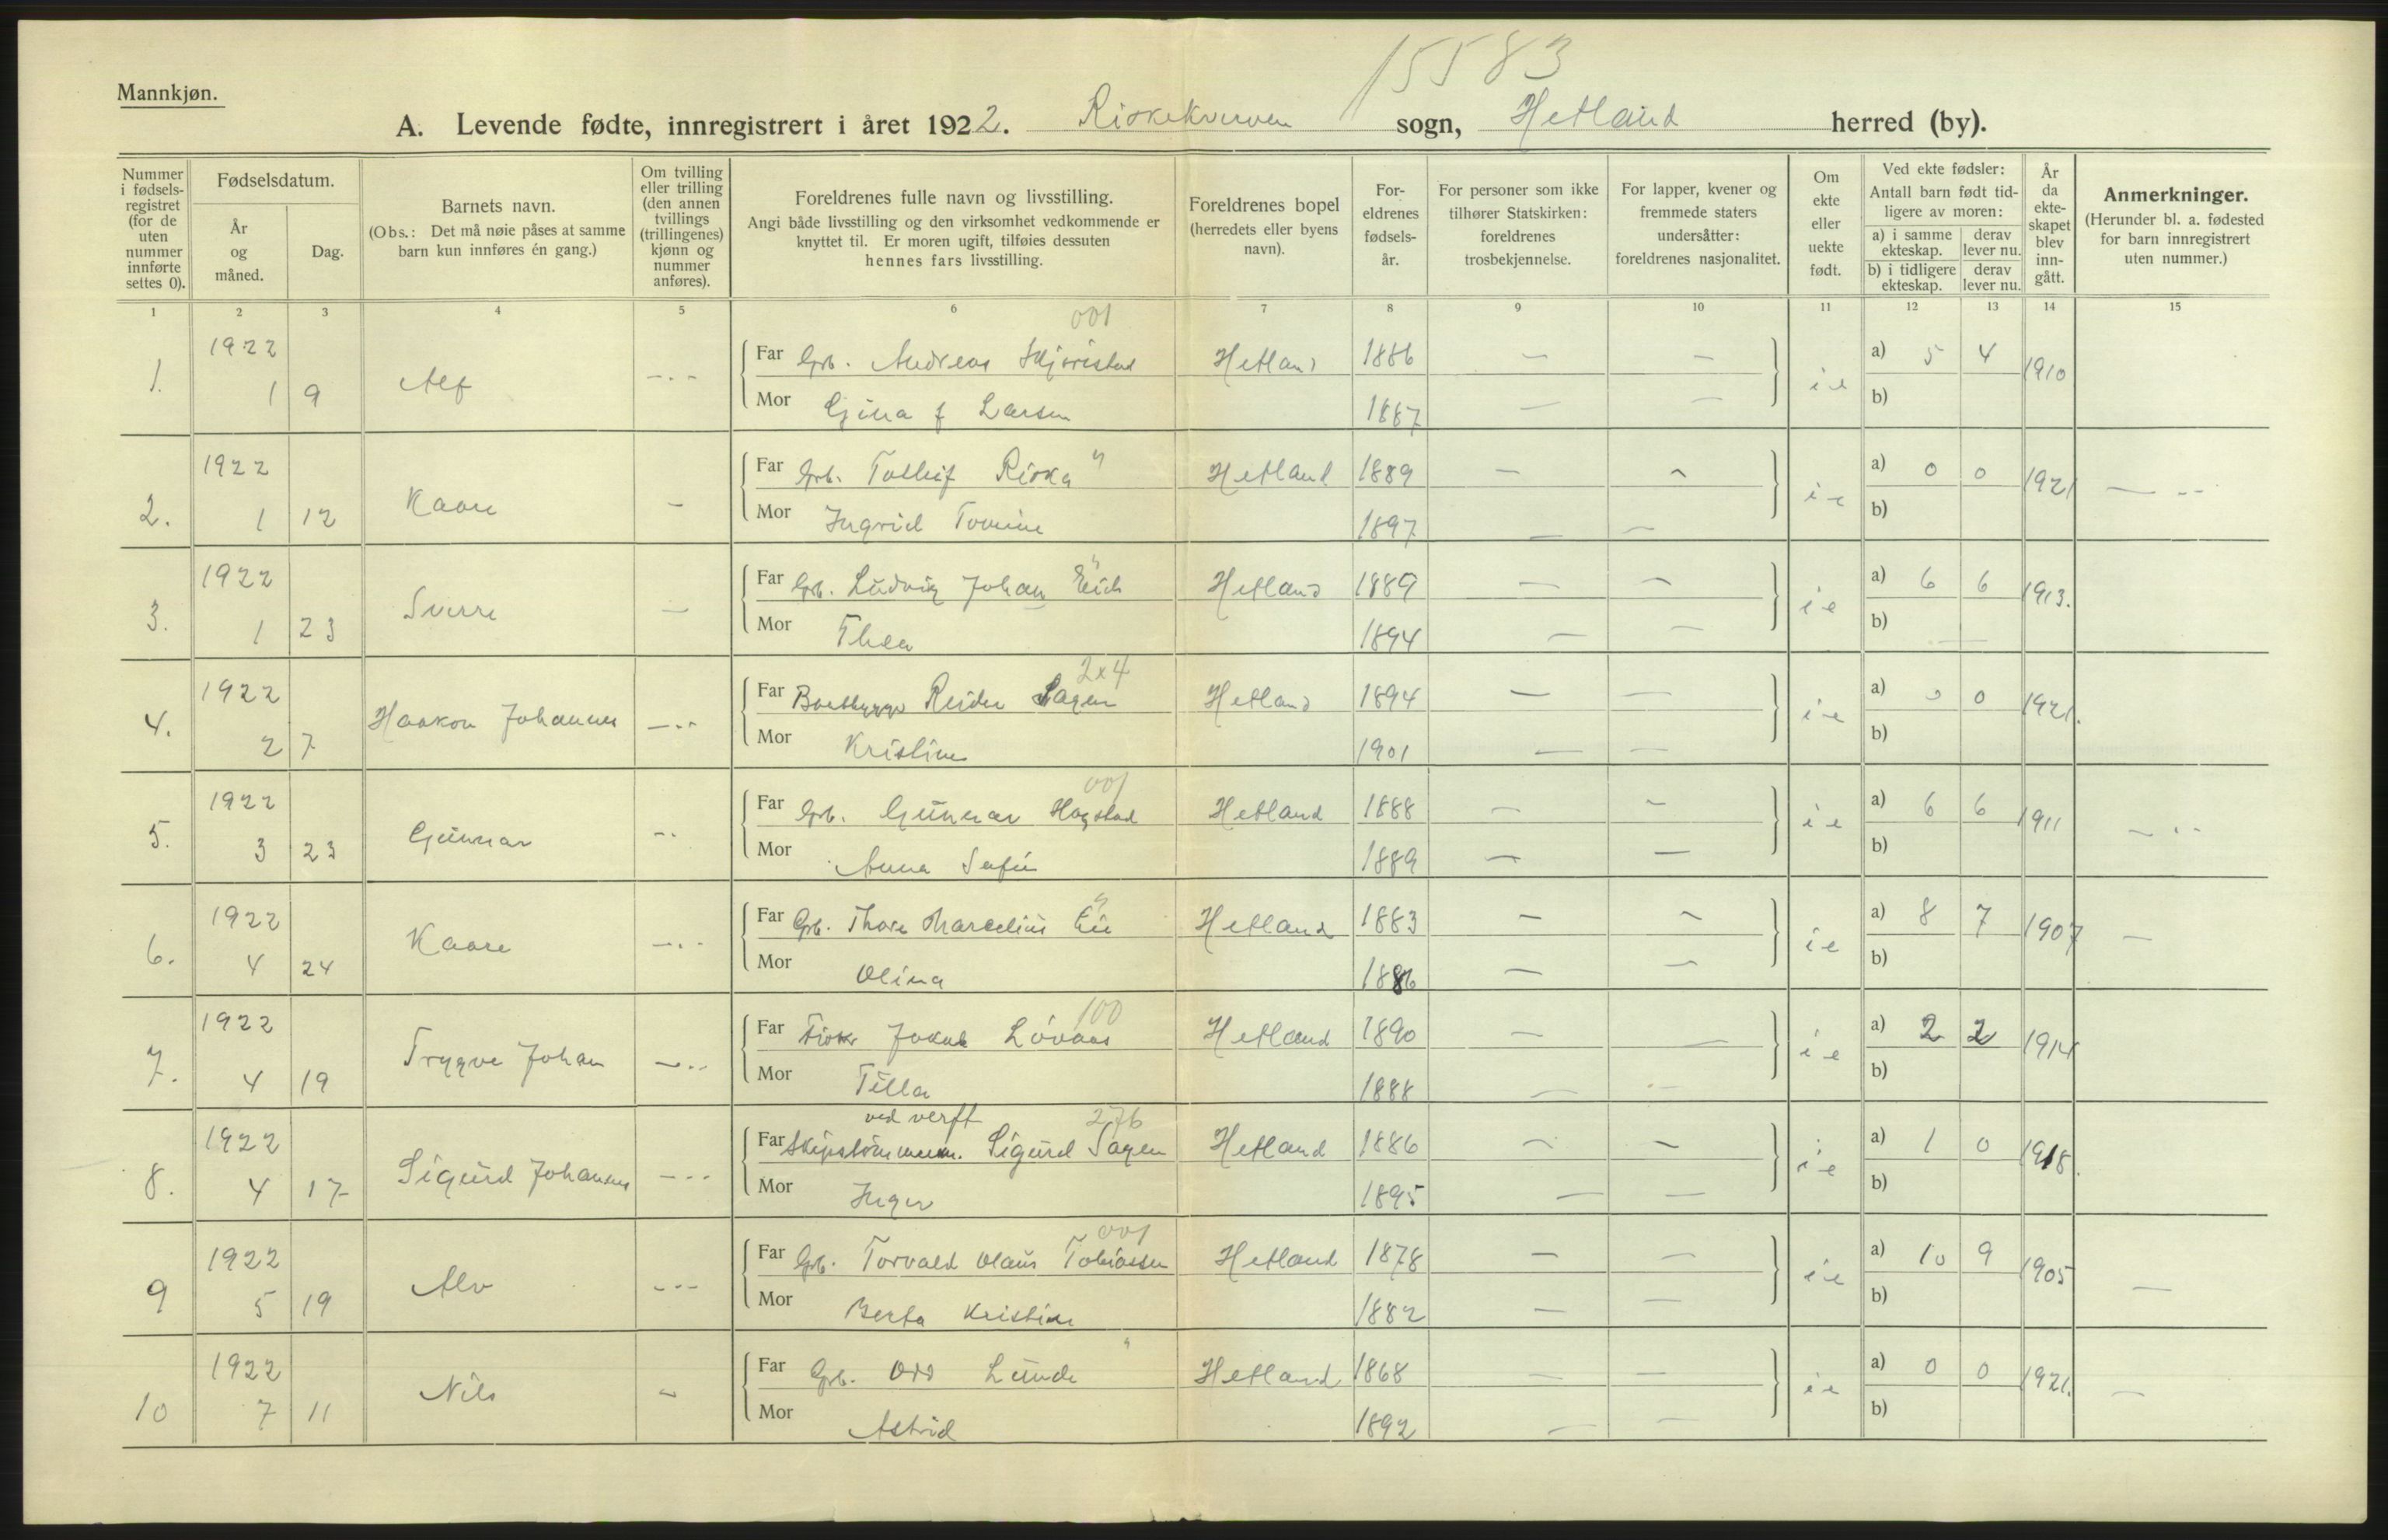 15583
Mannkjøn.
A. Levende fødte, innregistrert i året 1922. sogn, Hetland herred (by).
Nummer i fødsels-registret (for de uten nummer innførte settes 0).
Fødselsdatum.
År og måned.
Dag.
Barnets navn.
(Obs.: Det må nøie påses at samme barn kun innføres én gang.)
Om tvilling eller trilling (den annen tvillings (trillingenes) kjønn og nummer anføres).
Foreldrenes fulle navn og livsstilling.
Angi både livsstilling og den virksomhet vedkommende er knyttet til. Er moren ugift, tilføies dessuten hennes fars livsstilling.
Foreldrenes bopel (herredets eller byens navn).
For-eldrenes fødsels-år.
For personer som ikke tilhører Statskirken: foreldrenes trosbekjennelse.
For lapper, kvener og fremmede staters undersåtter: foreldrenes nasjonalitet.
Om ekte eller uekte født.
Ved ekte fødsler:
Antall barn født tid-ligere av moren:
a) i samme ekteskap. derav lever nu.
b) i tidligere ekteskap. derav lever nu.
År da ekte-skapet blev inn-gått.
Anmerkninger.
(Herunder bl. a. fødested for barn innregistrert uten nummer.)
1 2 3 4 5 6 7 8 9 10 11 12 13 14 15
001
1. 1922 1 9 Alf - . - Far Grb. Andreas Hetland 1886 — — i e a) 5 4 1910
Mor Gina f Larsen 1887 — — b)
"
2. 1922 1 12 Kaare — Far Grb. Tolleif Riska Hetland 1889 — — i e a) 0 0 1921 — --
Mor Ingrid Tomine 1897 — — b)
"
3. 1922 1 23 Sverre — Far Grb. Ludvig Johan Hetland 1889 — — i e a) 6 6 1913.
Mor Thea 1894 — — b) —
2x4
4. 1922 2 7 Haakon Johannes — Far Reidar Sagen Hetland 1894 — — i e a) 0 0 1921.
Mor Kristine 1901 — — b)
001
5. 1922 3 23 Gunnar -- Far Grb. Gunnar Hogstad Hetland 1888 — — i e a) 6 6 1911 — --
Mor Anna Sofie 1889 — — b)
"
6. 1922 4 24 Kaare — Far Grb. Thore Marcelius Hetland 1883 — — i e a) 8 7 1907 —
Mor Olina 1886 — — b)
100
7. 1922 4 19 Trygve Johan — Far Fisker Jakob Lövaas Hetland 1890 — — i e a) 2 2 1914
Mor Tilla 1888 — — b)
ved verft 276
8. 1922 4 17 Sigurd Johannes — Far Skipstömmerm. Sigurd Sagen Hetland 1886 — — i e a) 1 0 1918.
Mor Inger 1895 — — b)
001
9 1922 5 19 Alv --- Far Grb. Torvald Olaus Tobiassen Hetland 1878 — — i e a) 10 9 1905 —
Mor Berta Kristine 1882 — — b)
"
10 1922 7 11 Nils — Far Grb. Odd Lunde Hetland 1868 — — i e a) 0 0 1921. —
Mor Astrid 1892 — — b)